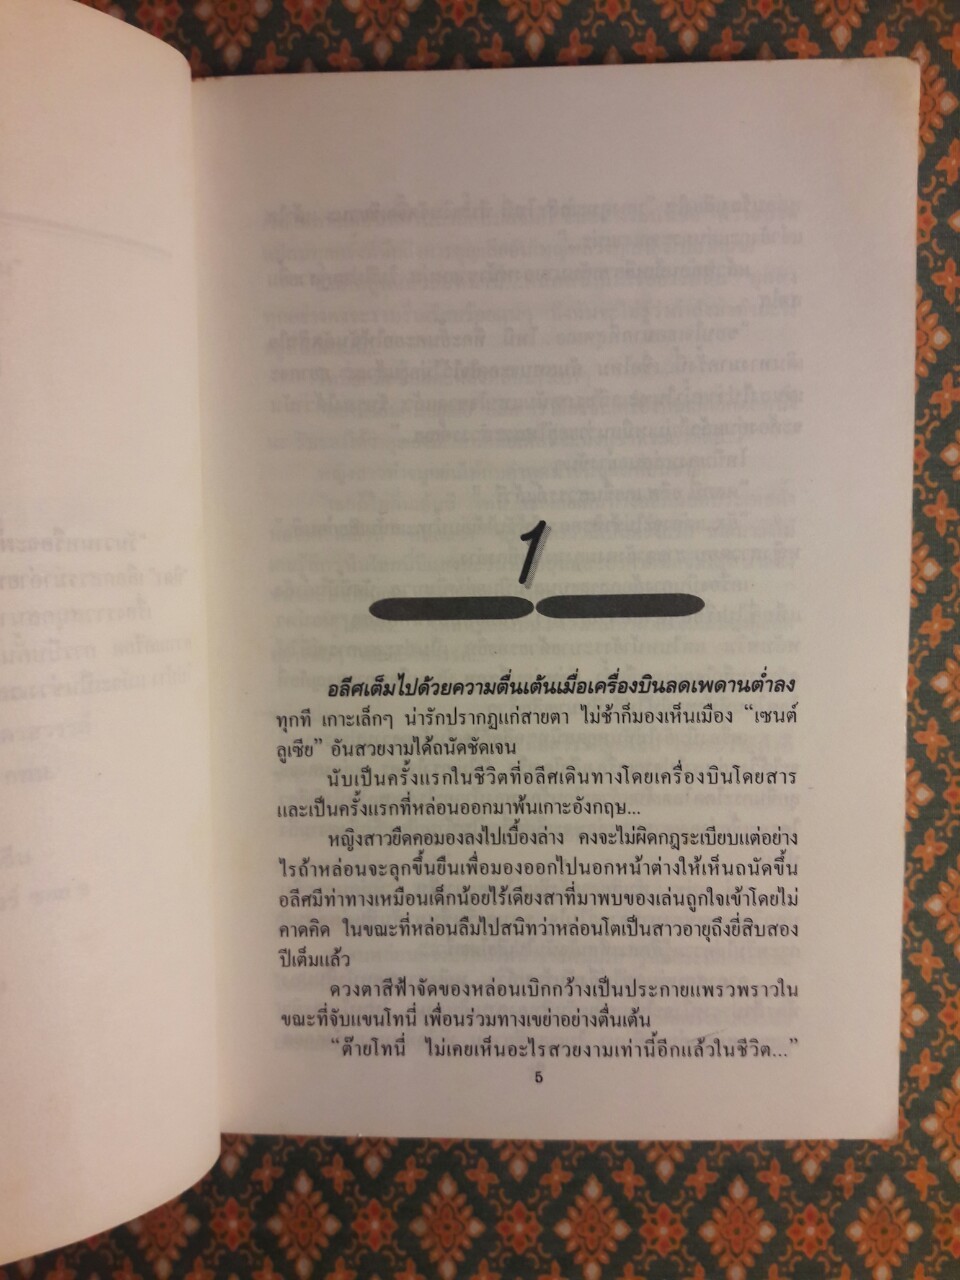 1
อลีศเต็มไปด้วยความตื่นเต้นเมื่อเครื่องบินลดเพดานต่ำลง
ทุกที เกาะเล็กๆ น่ารักปรากฏแก่สายตา ไม่ช้าก็มองเห็นเมือง “เซนต์
ลูเซีย” อันสวยงามได้ถนัดชัดเจน
นับเป็นครั้งแรกในชีวิตที่อลีศเดินทางโดยเครื่องบินโดยสาร
และเป็นครั้งแรกที่หล่อนออกมาพ้นเกาะอังกฤษ...
หญิงสาวยืดคอมองลงไปเบื้องล่าง คงจะไม่ผิดกฎระเบียบแต่อย่าง
ไรถ้าหล่อนจะลุกขึ้นยืนเพื่อมองออกไปนอกหน้าต่างให้เห็นถนัดขึ้น
อลีศมีท่าทางเหมือนเด็กน้อยไร้เดียงสาที่มาพบของเล่นถูกใจเข้าโดยไม่
คาดคิด ในขณะที่หล่อนลืมไปสนิทว่าหล่อนโตเป็นสาวอายุถึงยี่สิบสอง
ปีเต็มแล้ว
ดวงตาสีฟ้าจัดของหล่อนเบิกกว้างเป็นประกายแพรวพราวใน
ขณะที่จับแขนโทนี่ เพื่อนร่วมทางเขย่าอย่างตื่นเต้น
“ต๊ายโทนี่ ไม่เคยเห็นอะไรสวยงามเท่านี้อีกแล้วในชีวิต...”
5